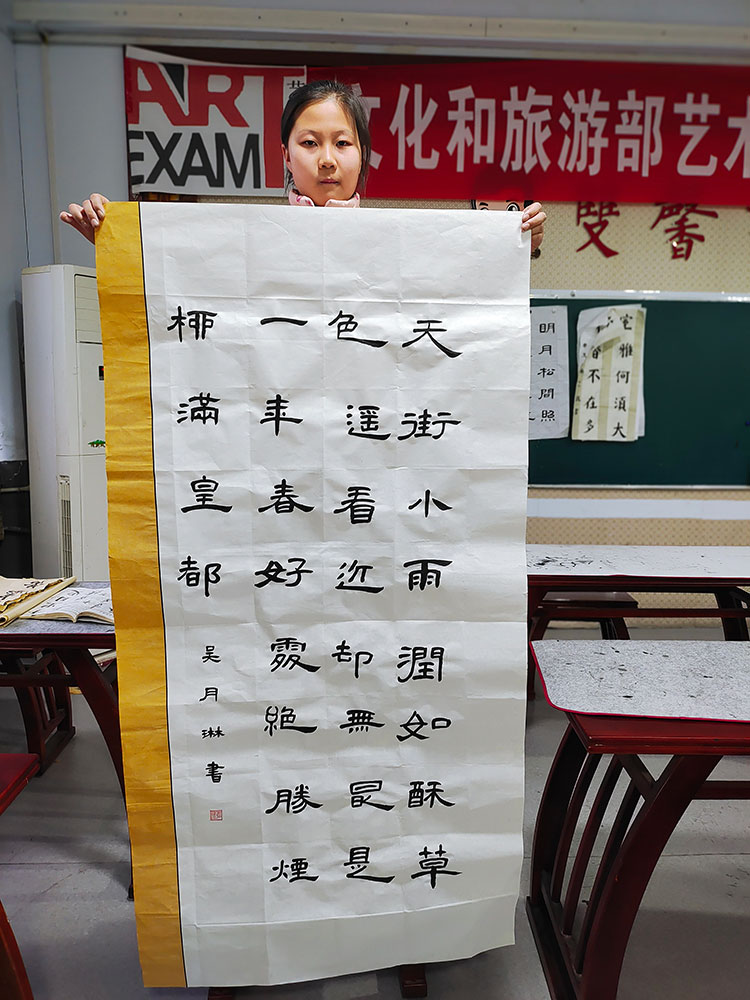 ART
EXAM
文化和旅游部艺术
雙馨
天街小雨潤如酥草
色遙看近却無最是
一年春好處絕勝煙
柳滿皇都
吴月琳書
明月松間照
室雅何須大
香不在多